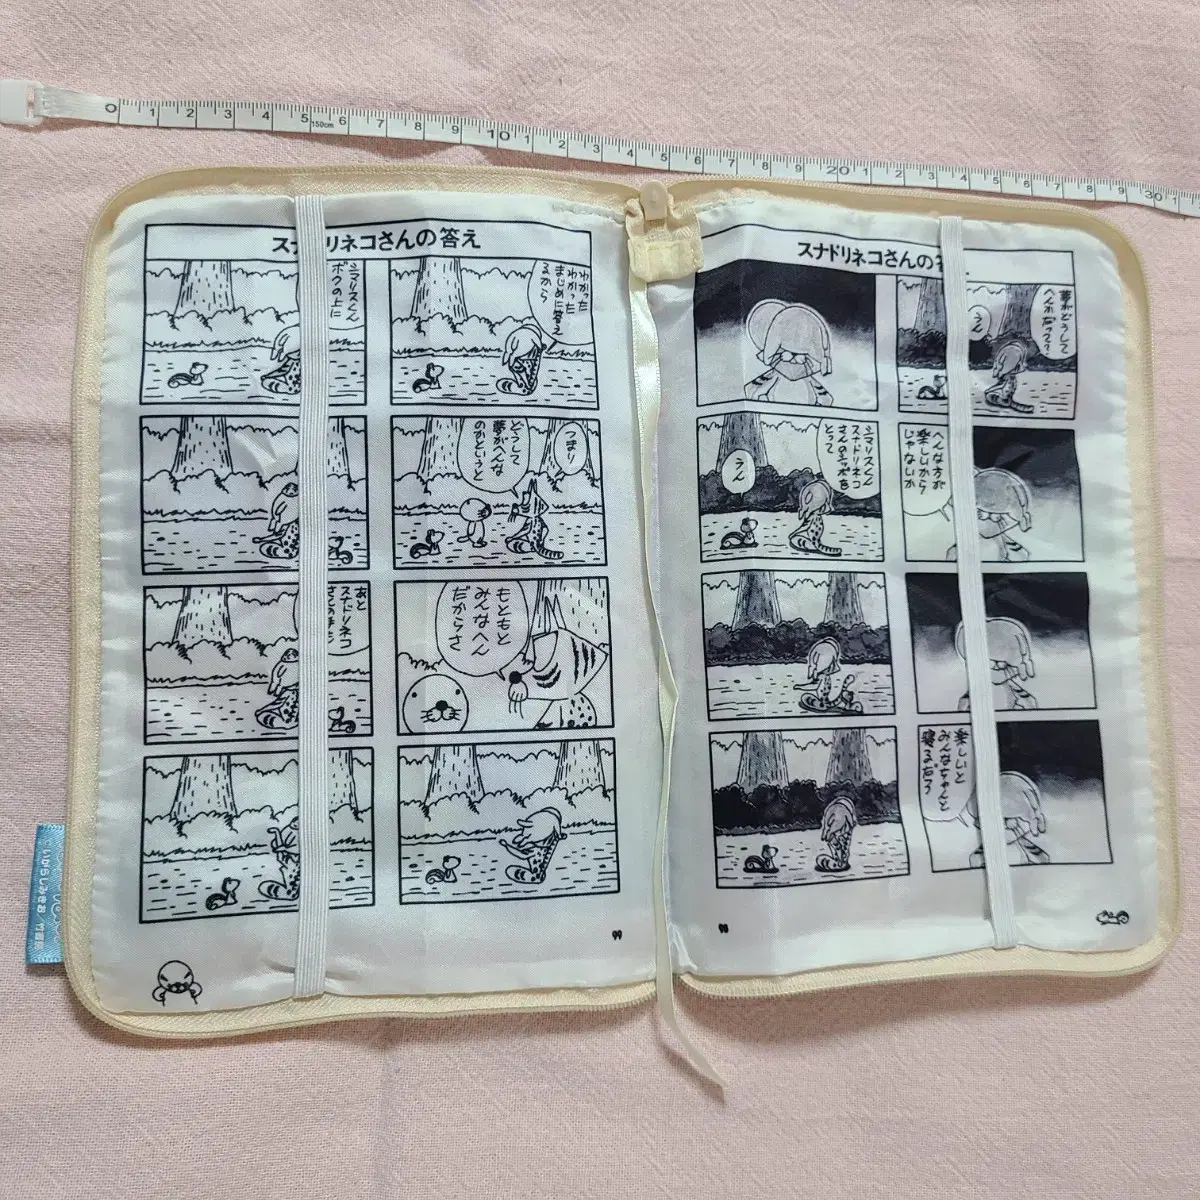 0 1 2 3 4 5 150cm 6 7 8 9 10 1 2 3 4 5 6 7 8 9 20 1 2 3 4 5 6 7 8 9 30 1
スナドリネコさんの答え
わかった
わかった
まじめに答え
るから
シマリスくん
ボクの上に
つまり
どうして
夢がへんな
のかというと
もともと
みんなへん
だからさ
あと
スナドリネコ
99
スナドリネコさんの
夢がどうして
へんかって?
うん
シマリスくん
スナドリネコ
さんのシッポを
とって
うん
へんな方が
楽しいから
じゃないか
楽しいと
みんなちゃんと
寝るだろ
98
©いがらしみきお/竹書房